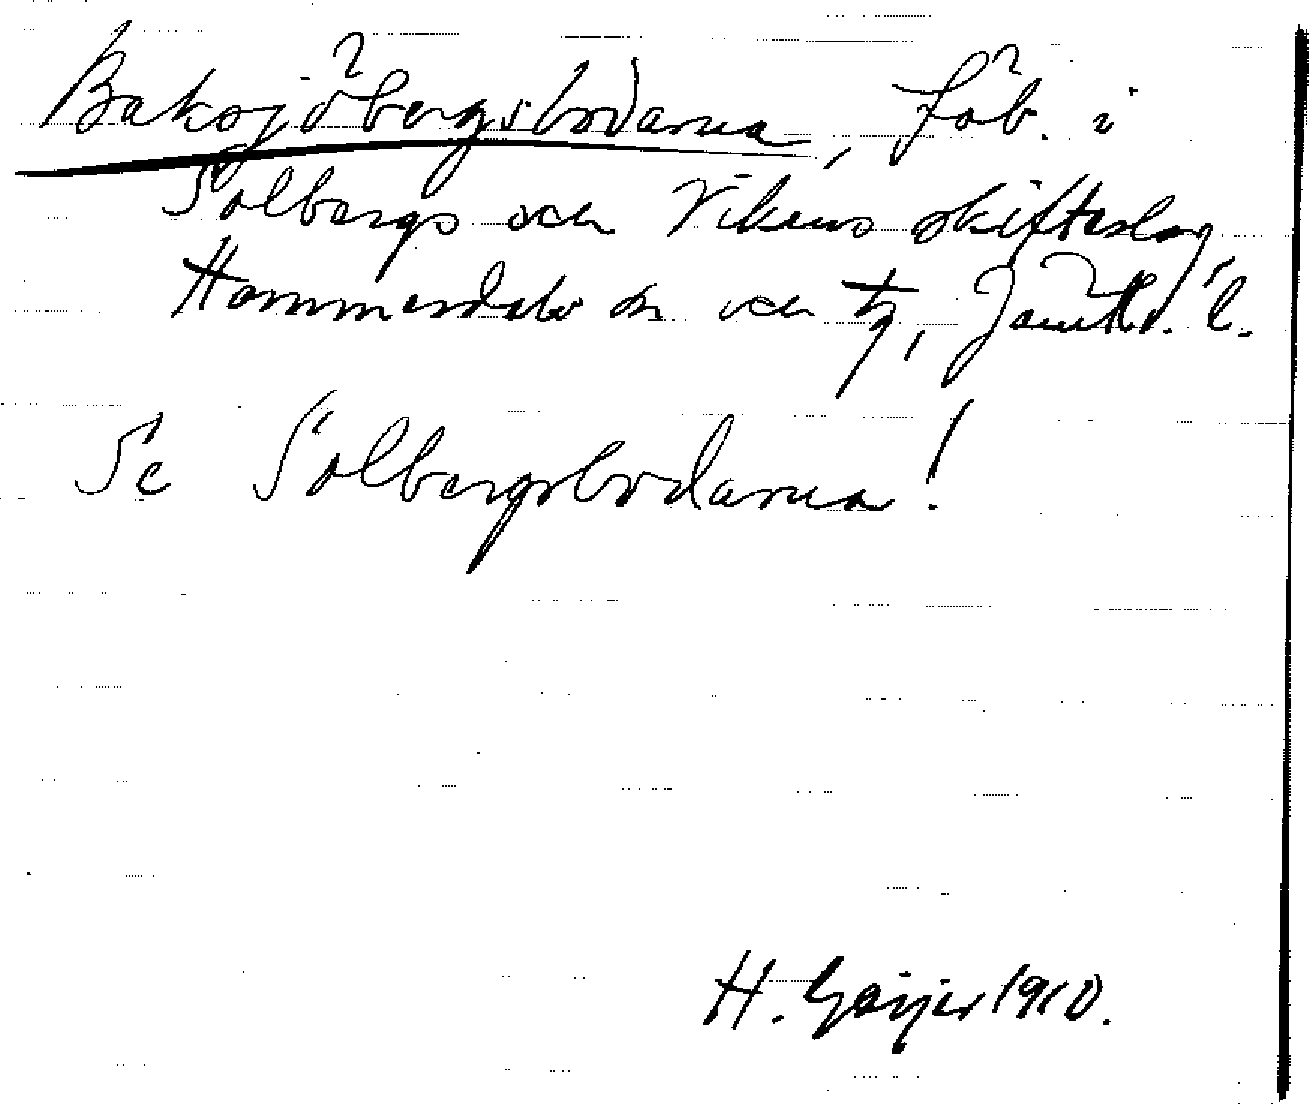 Baksjöbergsbodarna, fäb. i
Solbergs och Vikens skifteslag
Hammerdals sn och tg, Jämtl. l.
Se Solbergsbodarna!
H. Geijer 1910.